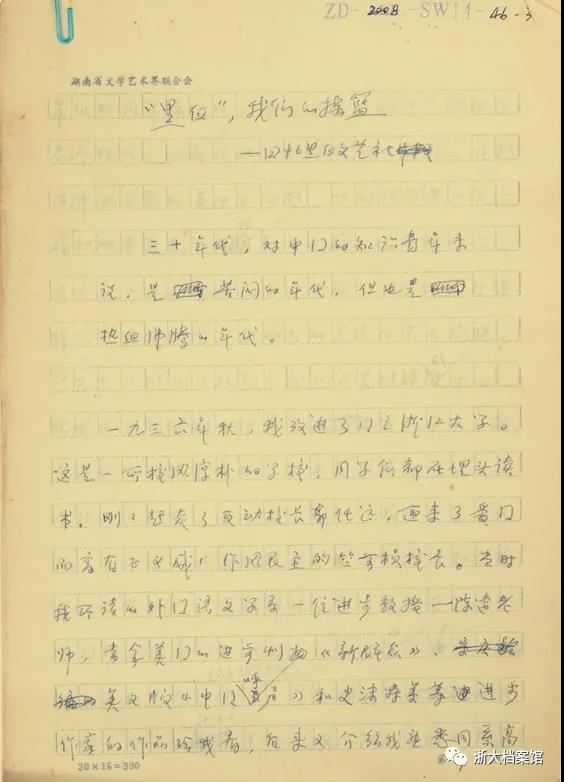 ZD-2008-SW14-46-3
湖南省文学艺术界联合会
“黑白”，我们的摇篮
——回忆黑白文艺社
三十年代，对中国的知识青年来
说，是苦闷的年代，但也是
热血沸腾的年代。
一九三六年秋，我考进了国立浙江大学。
这是一所校风淳朴的学校，同学们都在埋头读
书。刚刚赶走了反动校长郭任远，迎来了爱国
而富有正义感，作风民主的竺可桢校长。当时
我所读的外国语文学系一位进步教授—陈逵老
师，常拿美国的进步刊物《新群众》、
英文版《中国呼声》和史沫特莱等进步
作家的作品给我看，后来又介绍我熟悉同系高
20×15=300
第
浙大档案馆